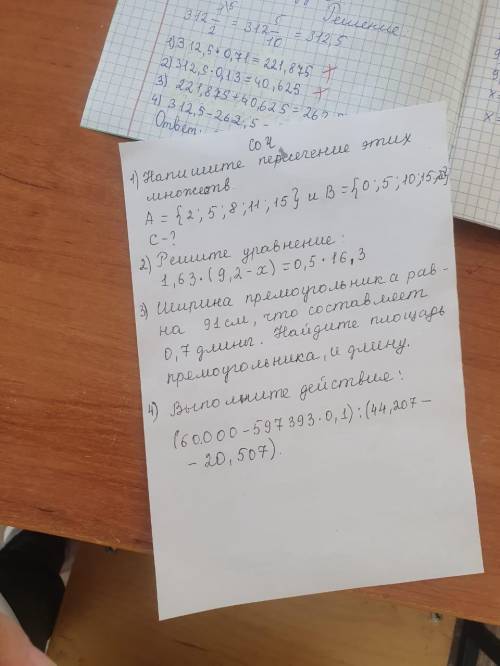 Решение
312 1/2 = 312 5/10 = 312,5
1) 312,5 · 0,71 = 221,875
2) 312,5 · 0,13 = 40,625
3) 221,875 + 40,625 = 262
4) 312,5 - 262,5 =
Ответ:
СОЧ
1) Напишите пересечение этих
множеств.
A = {2; 5; 8; 11; 15} и B = {0; 5; 10; 15;
C-?
2) Решите уравнение:
1,63 · (9,2 - x) = 0,5 · 16,3
3) Ширина прямоугольника рав-
на 91 см, что составляет
0,7 длины. Найдите площадь
прямоугольника, и длину.
4) Выполните действие:
(60.000 - 597 393 · 0,1) : (44,207 -
- 20,507).